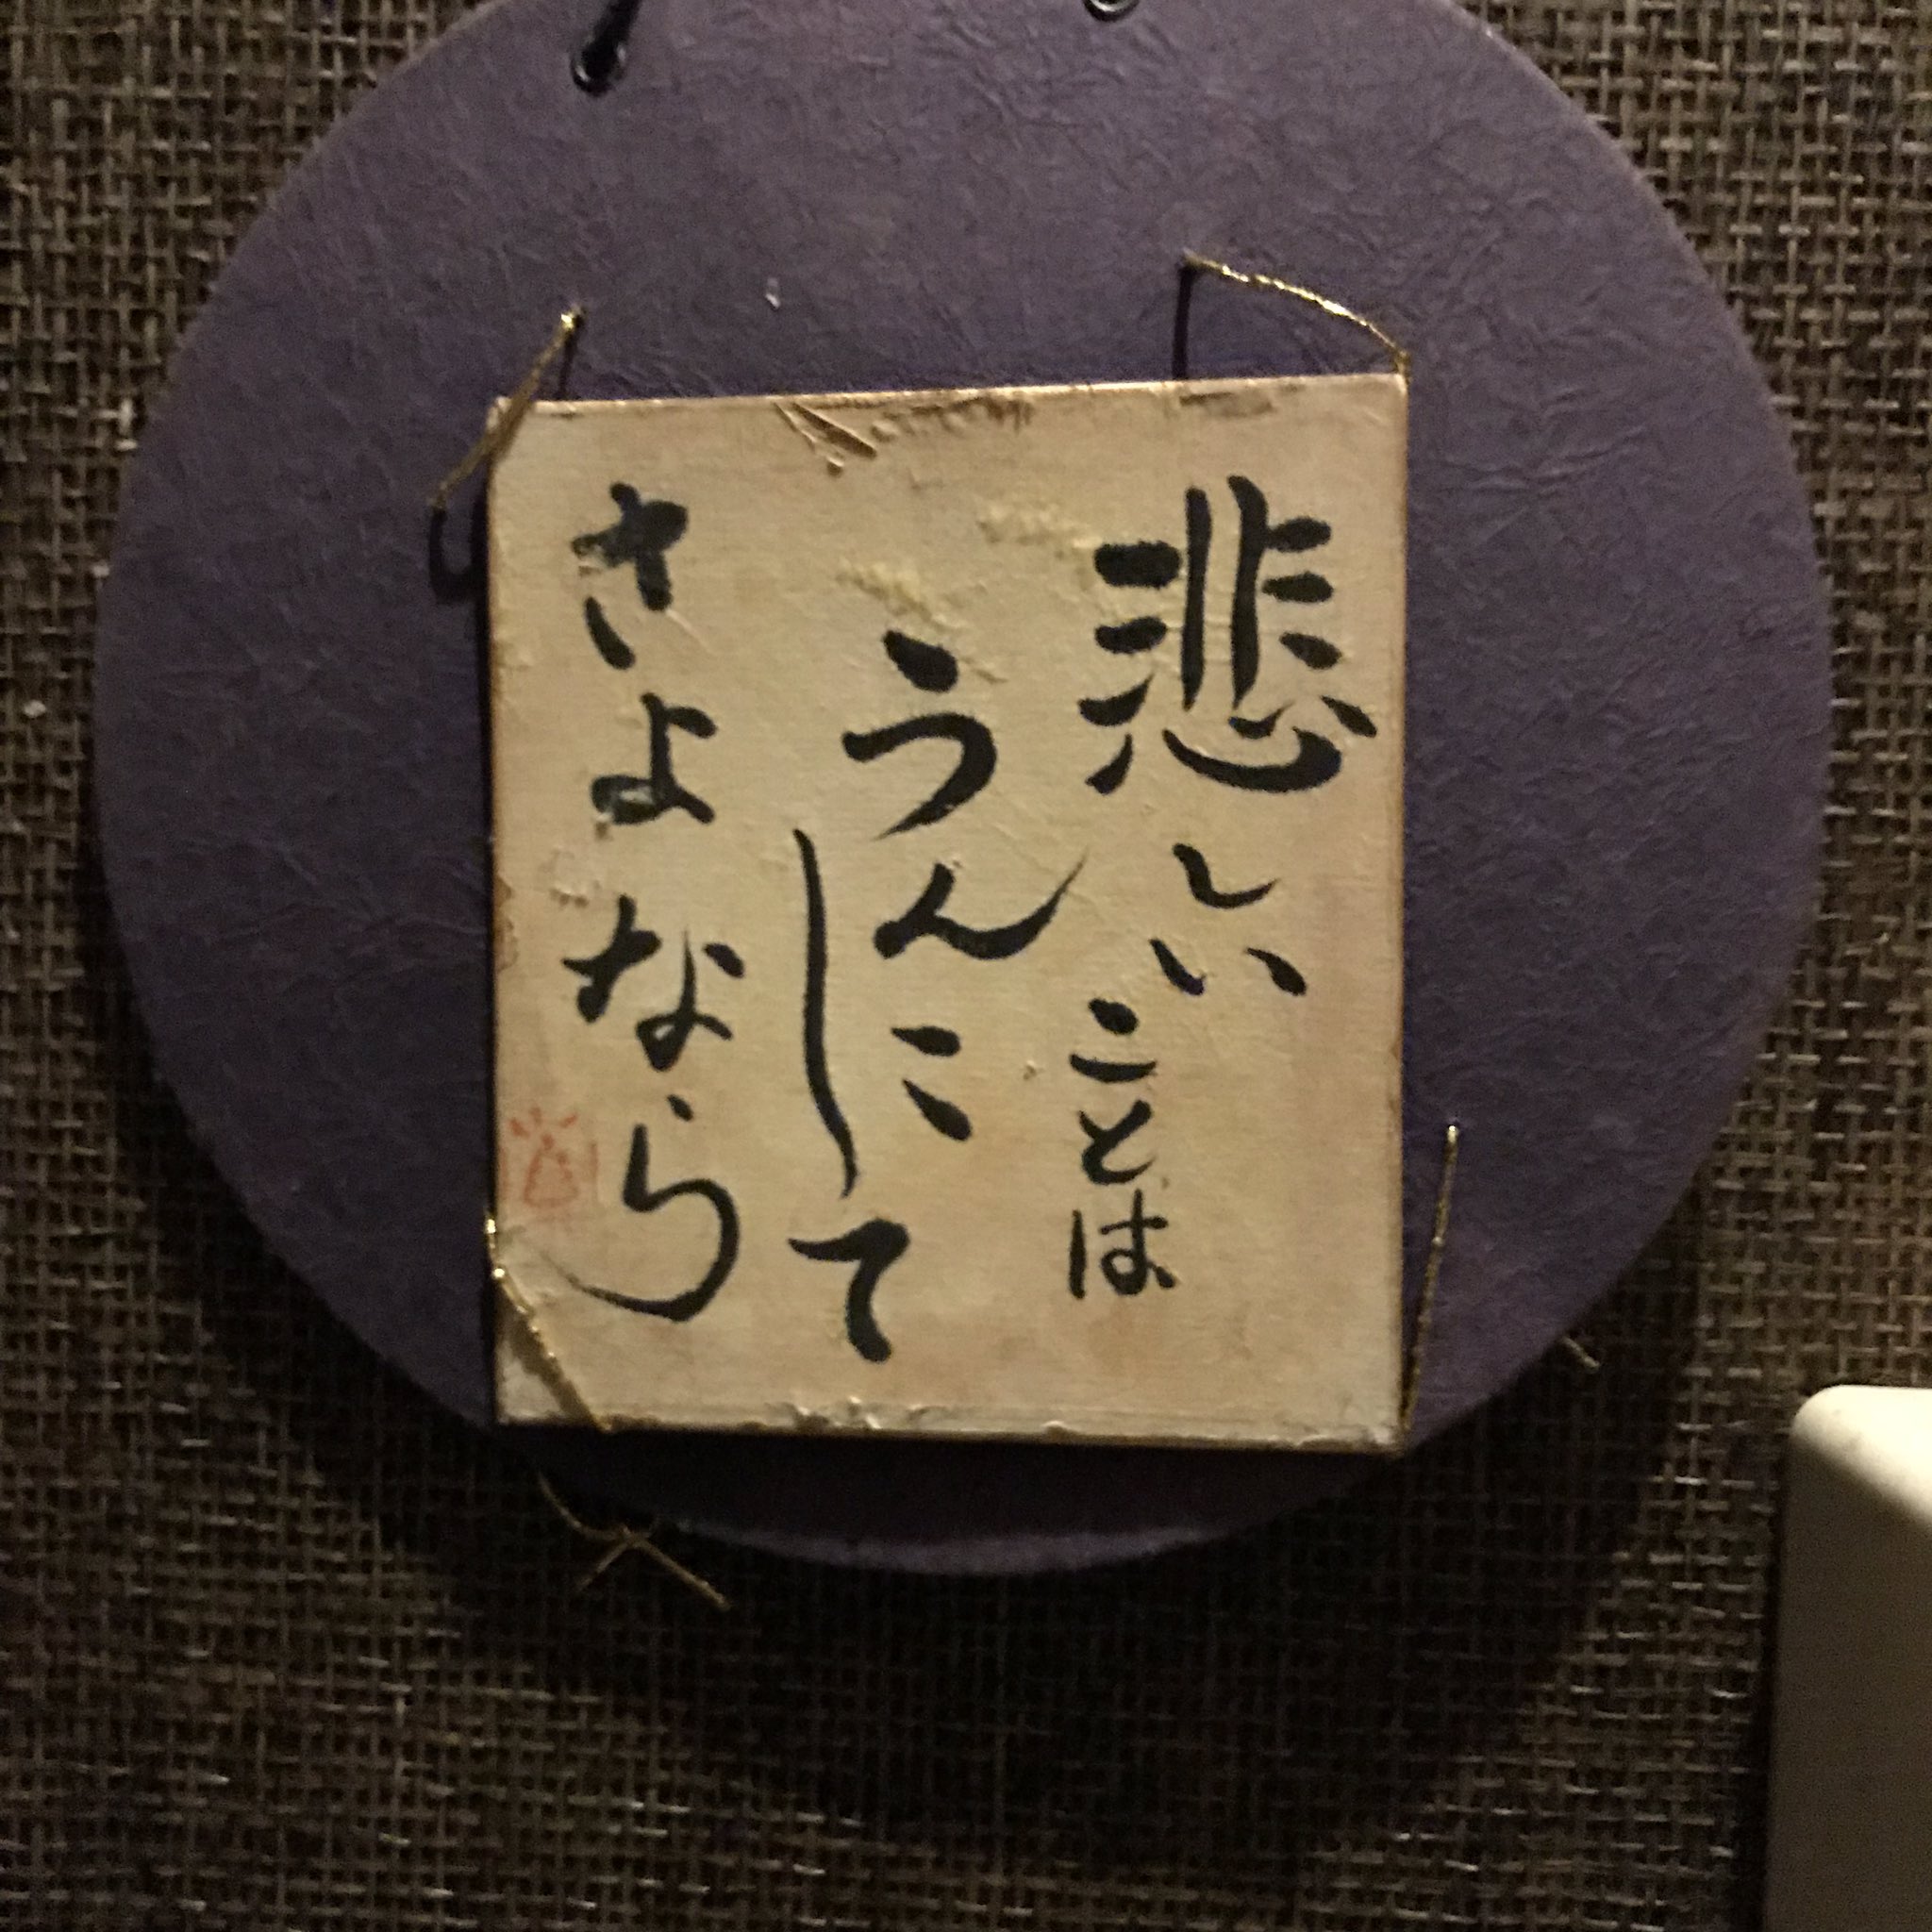 悲しいことは
うんこして
さよなら